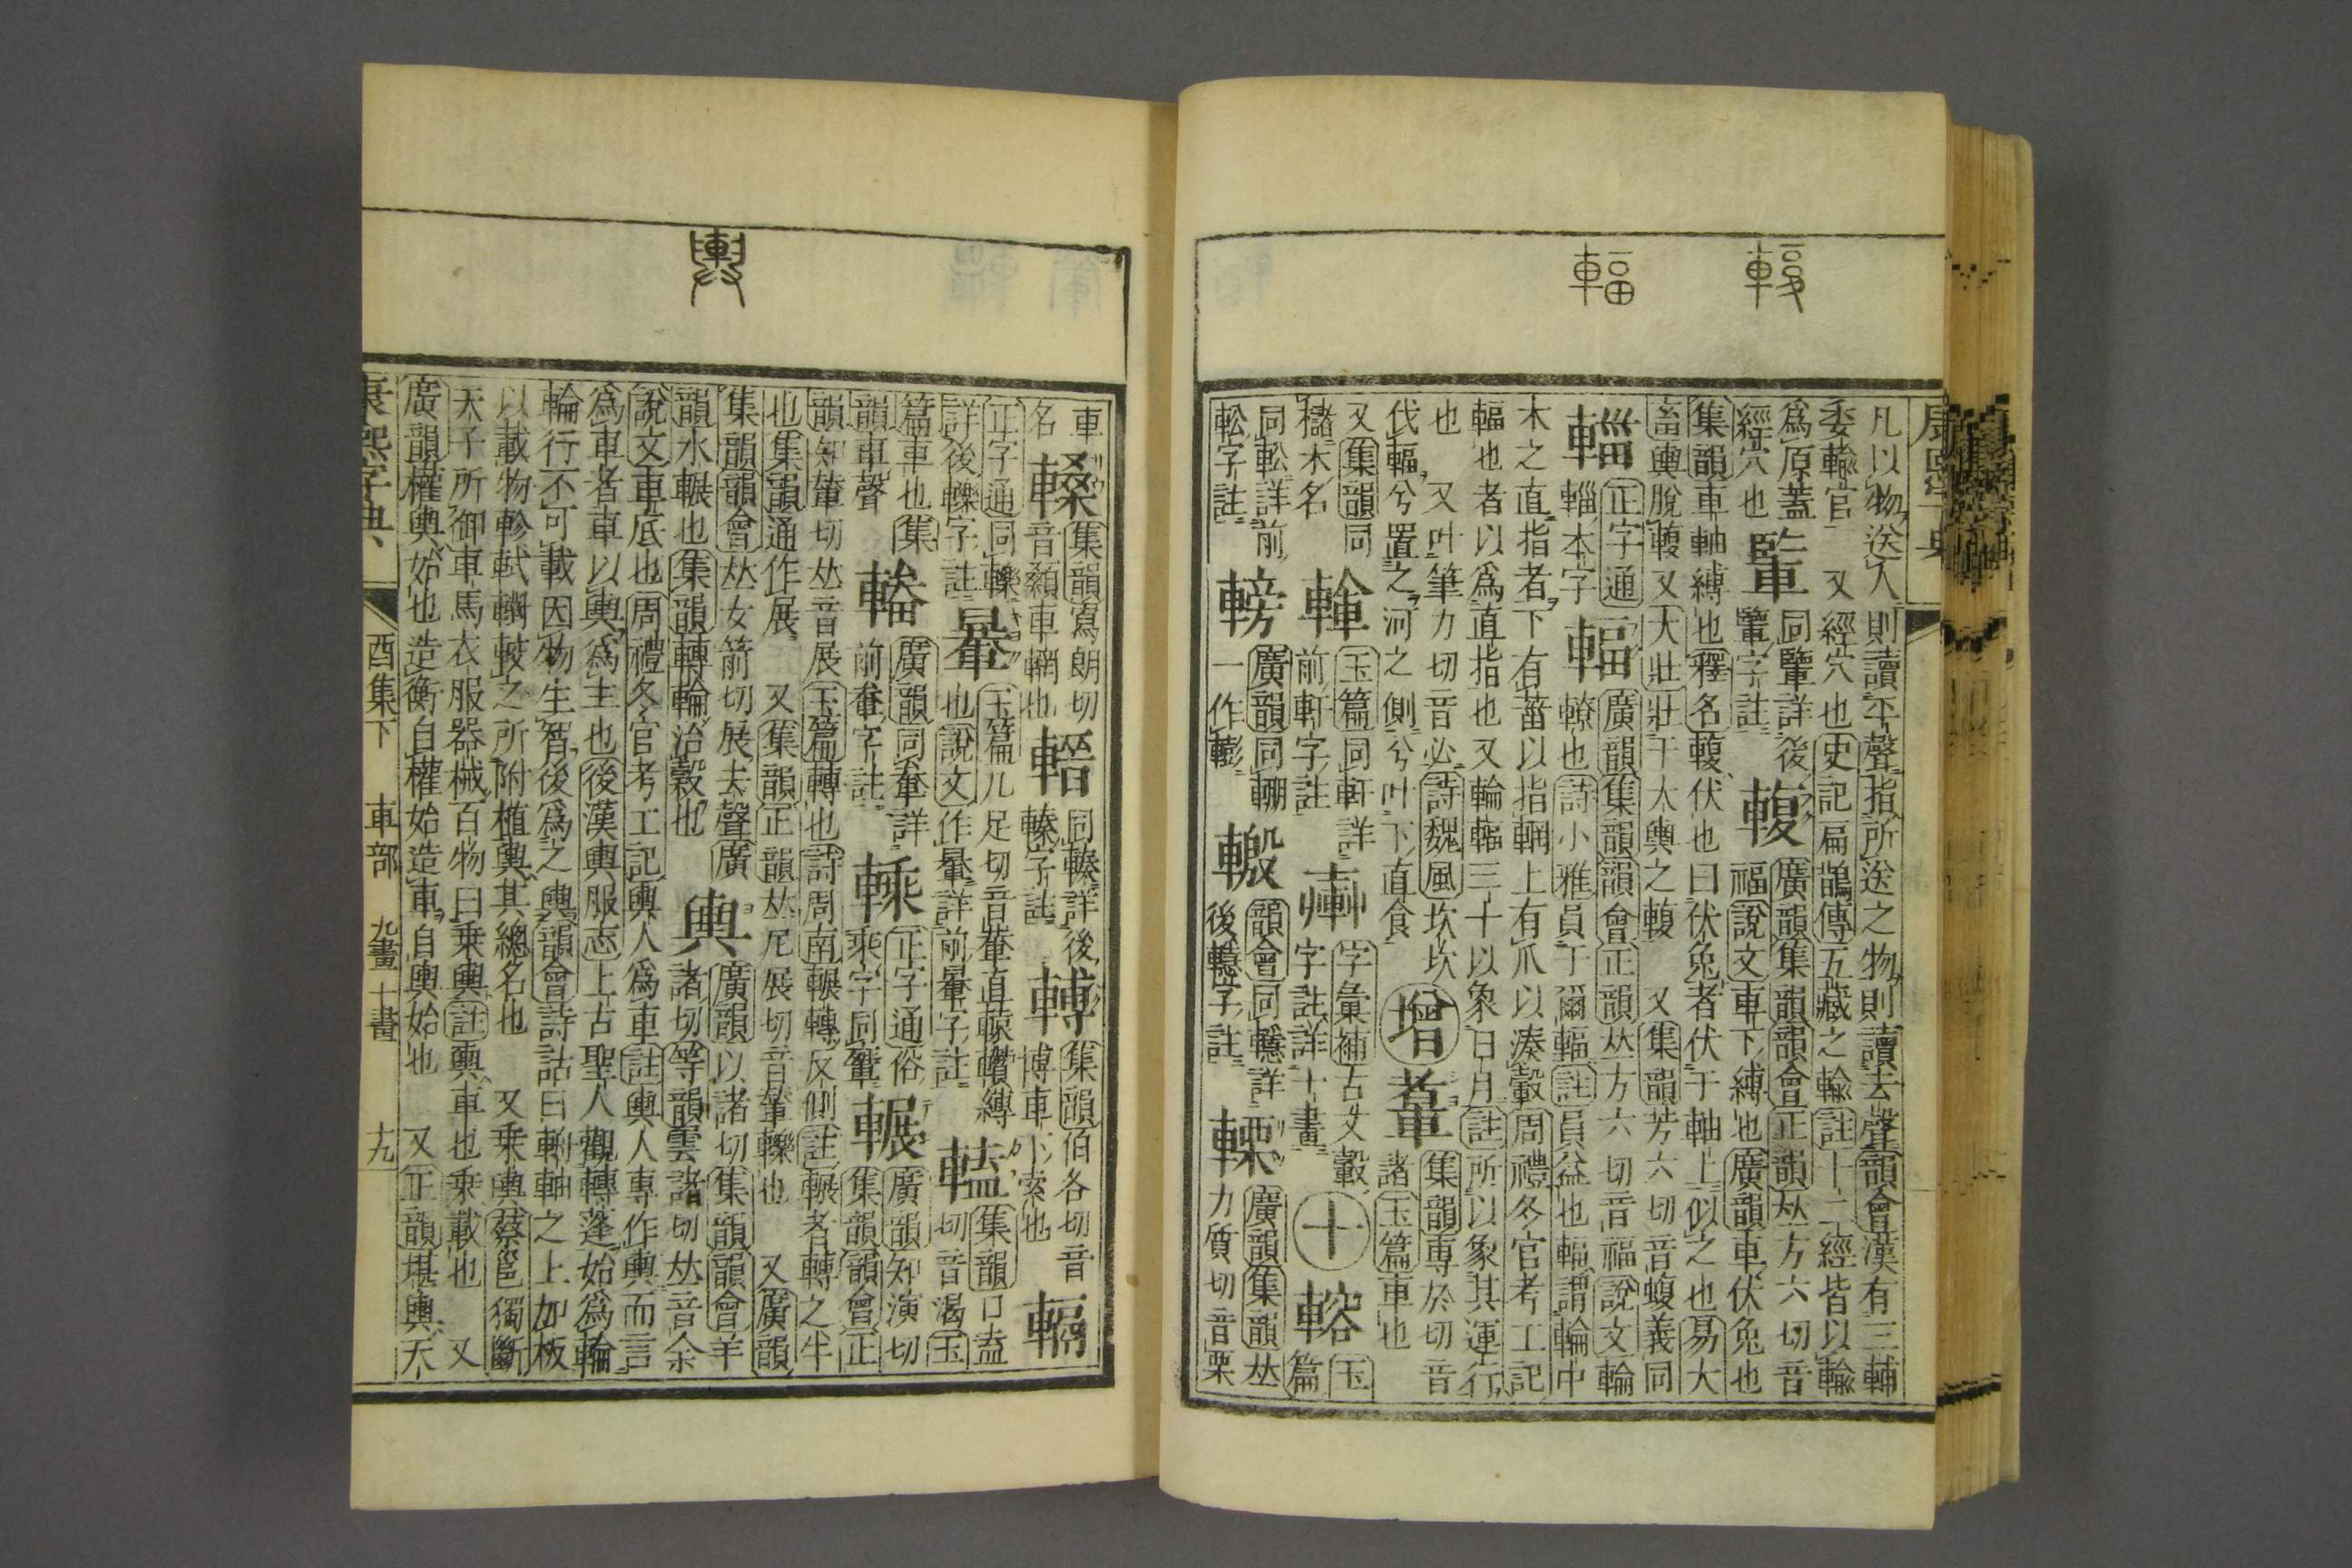 輹
輻
凡以物送人則讀平聲指所送之物則讀去聲韻會漢有三輔
委輸官 又經穴也史記扁鵲傳五藏之輸註十二經皆以輸
爲原蓋 同䡺詳後 輹 廣韻集韻韻會正韻𠀤方六切音
經穴也 字註 福說文車下縛也廣韻車伏兔也
集韻車軸縛也釋名輹伏也曰伏兔者伏于軸上似之也易大
畜輿脫輹又大壯壯于大輿之輹 又集韻芳六切音蝮義同
輜 正字通 輻 廣韻集韻韻會正韻𠀤方六切音福說文輪
輜本字 轑也詩小雅員于爾輻註員益也輻謂輪中
木之直指者下有菑以指輞上有爪以湊轂周禮冬官考工記
輻也者以爲直指也又輪輻三十以象日月註所以象其運行
也 又叶筆力切音必詩魏風坎坎 增 集韻專於切音
伐輻兮置之河之側兮叶下直食 諸玉篇車也
又集韻同 玉篇同軒詳 字彙補古文轂 十 輍 玉
櫧木名 前軒字註 字註詳十畫 篇
同䡥詳前 輽 廣韻同輣 韻會同 詳 廣韻集韻𠀤
䡥字註 一作 後 字註 力質切音栗
輿
車 集韻寫朗切 同輳詳後 集韻伯各切音
名 音顙車輞也 輳字註 博車下索也
正字通同轢 玉篇几足切音輂直轅 縛 集韻口盍
詳後轢字註 也說文作 詳前 字註 切音 玉
篇車也集 廣韻同 詳 正字通俗 輾 廣韻知演切
韻車聲 前 字註 乘字同 集韻韻會正
韻知輦切𠀤音展玉篇轉也詩周南輾轉反側註輾者轉之半
也集韻通作展 又集韻正韻𠀤尼展切音輦轢也 又廣韻
集韻韻會𠀤女箭切展去聲廣 輿 廣韻以諸切集韻韻會羊
韻水輾也集韻轉輪治穀也 諸切等韻雲諸切𠀤音余
說文車底也周禮冬官考工記輿人爲車註輿人專作輿而言
爲車者車以輿爲主也後漢輿服志上古聖人觀轉蓬始爲輪
輪行不可載因物生智後爲之輿韻會詩詁曰輈軸之上加板
以載物軫軾轛較之所附植輿其總名也 又乘輿蔡邕獨斷
天子所御車馬衣服器械百物曰乘輿註輿車也乘載也 又
廣韻權輿始也造衡自權始造車自輿始也 又正韻堪輿天
康熙字典 酉集下 車部 九畫十畫 十九